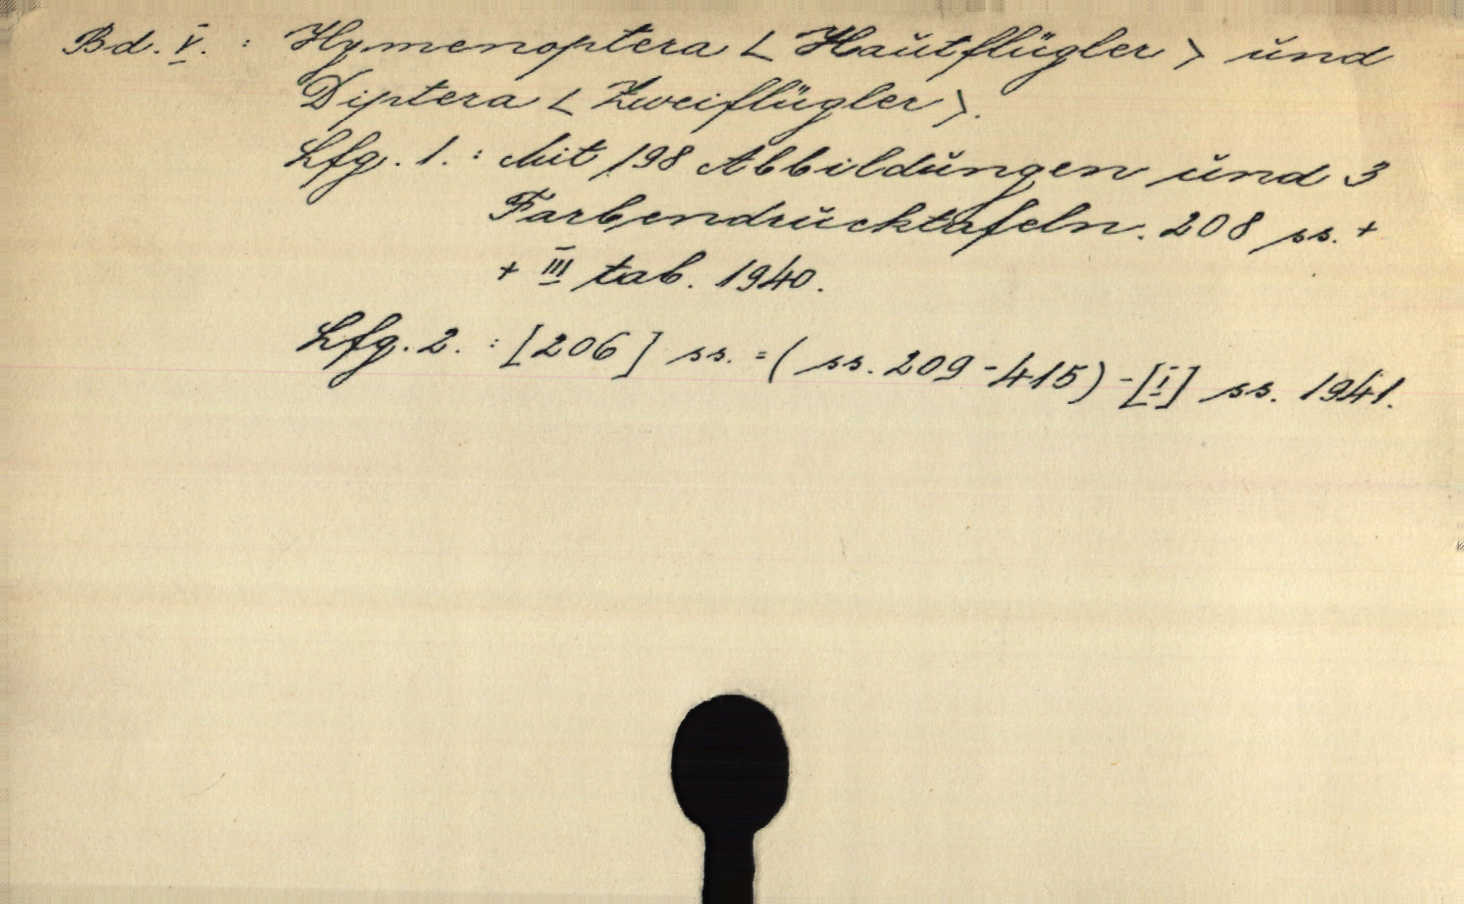 Bd. V. : Hymenoptera < Hautflügler > und
Diptera < Zweiflügler >.
Lfg. 1. : Mit 198 Abbildungen und 3
Farbendrucktafeln. 208 ss. +
+ III tab. 1940.
Lfg. 2. : [206] ss. = ( ss. 209-415) - [I] ss. 1941.